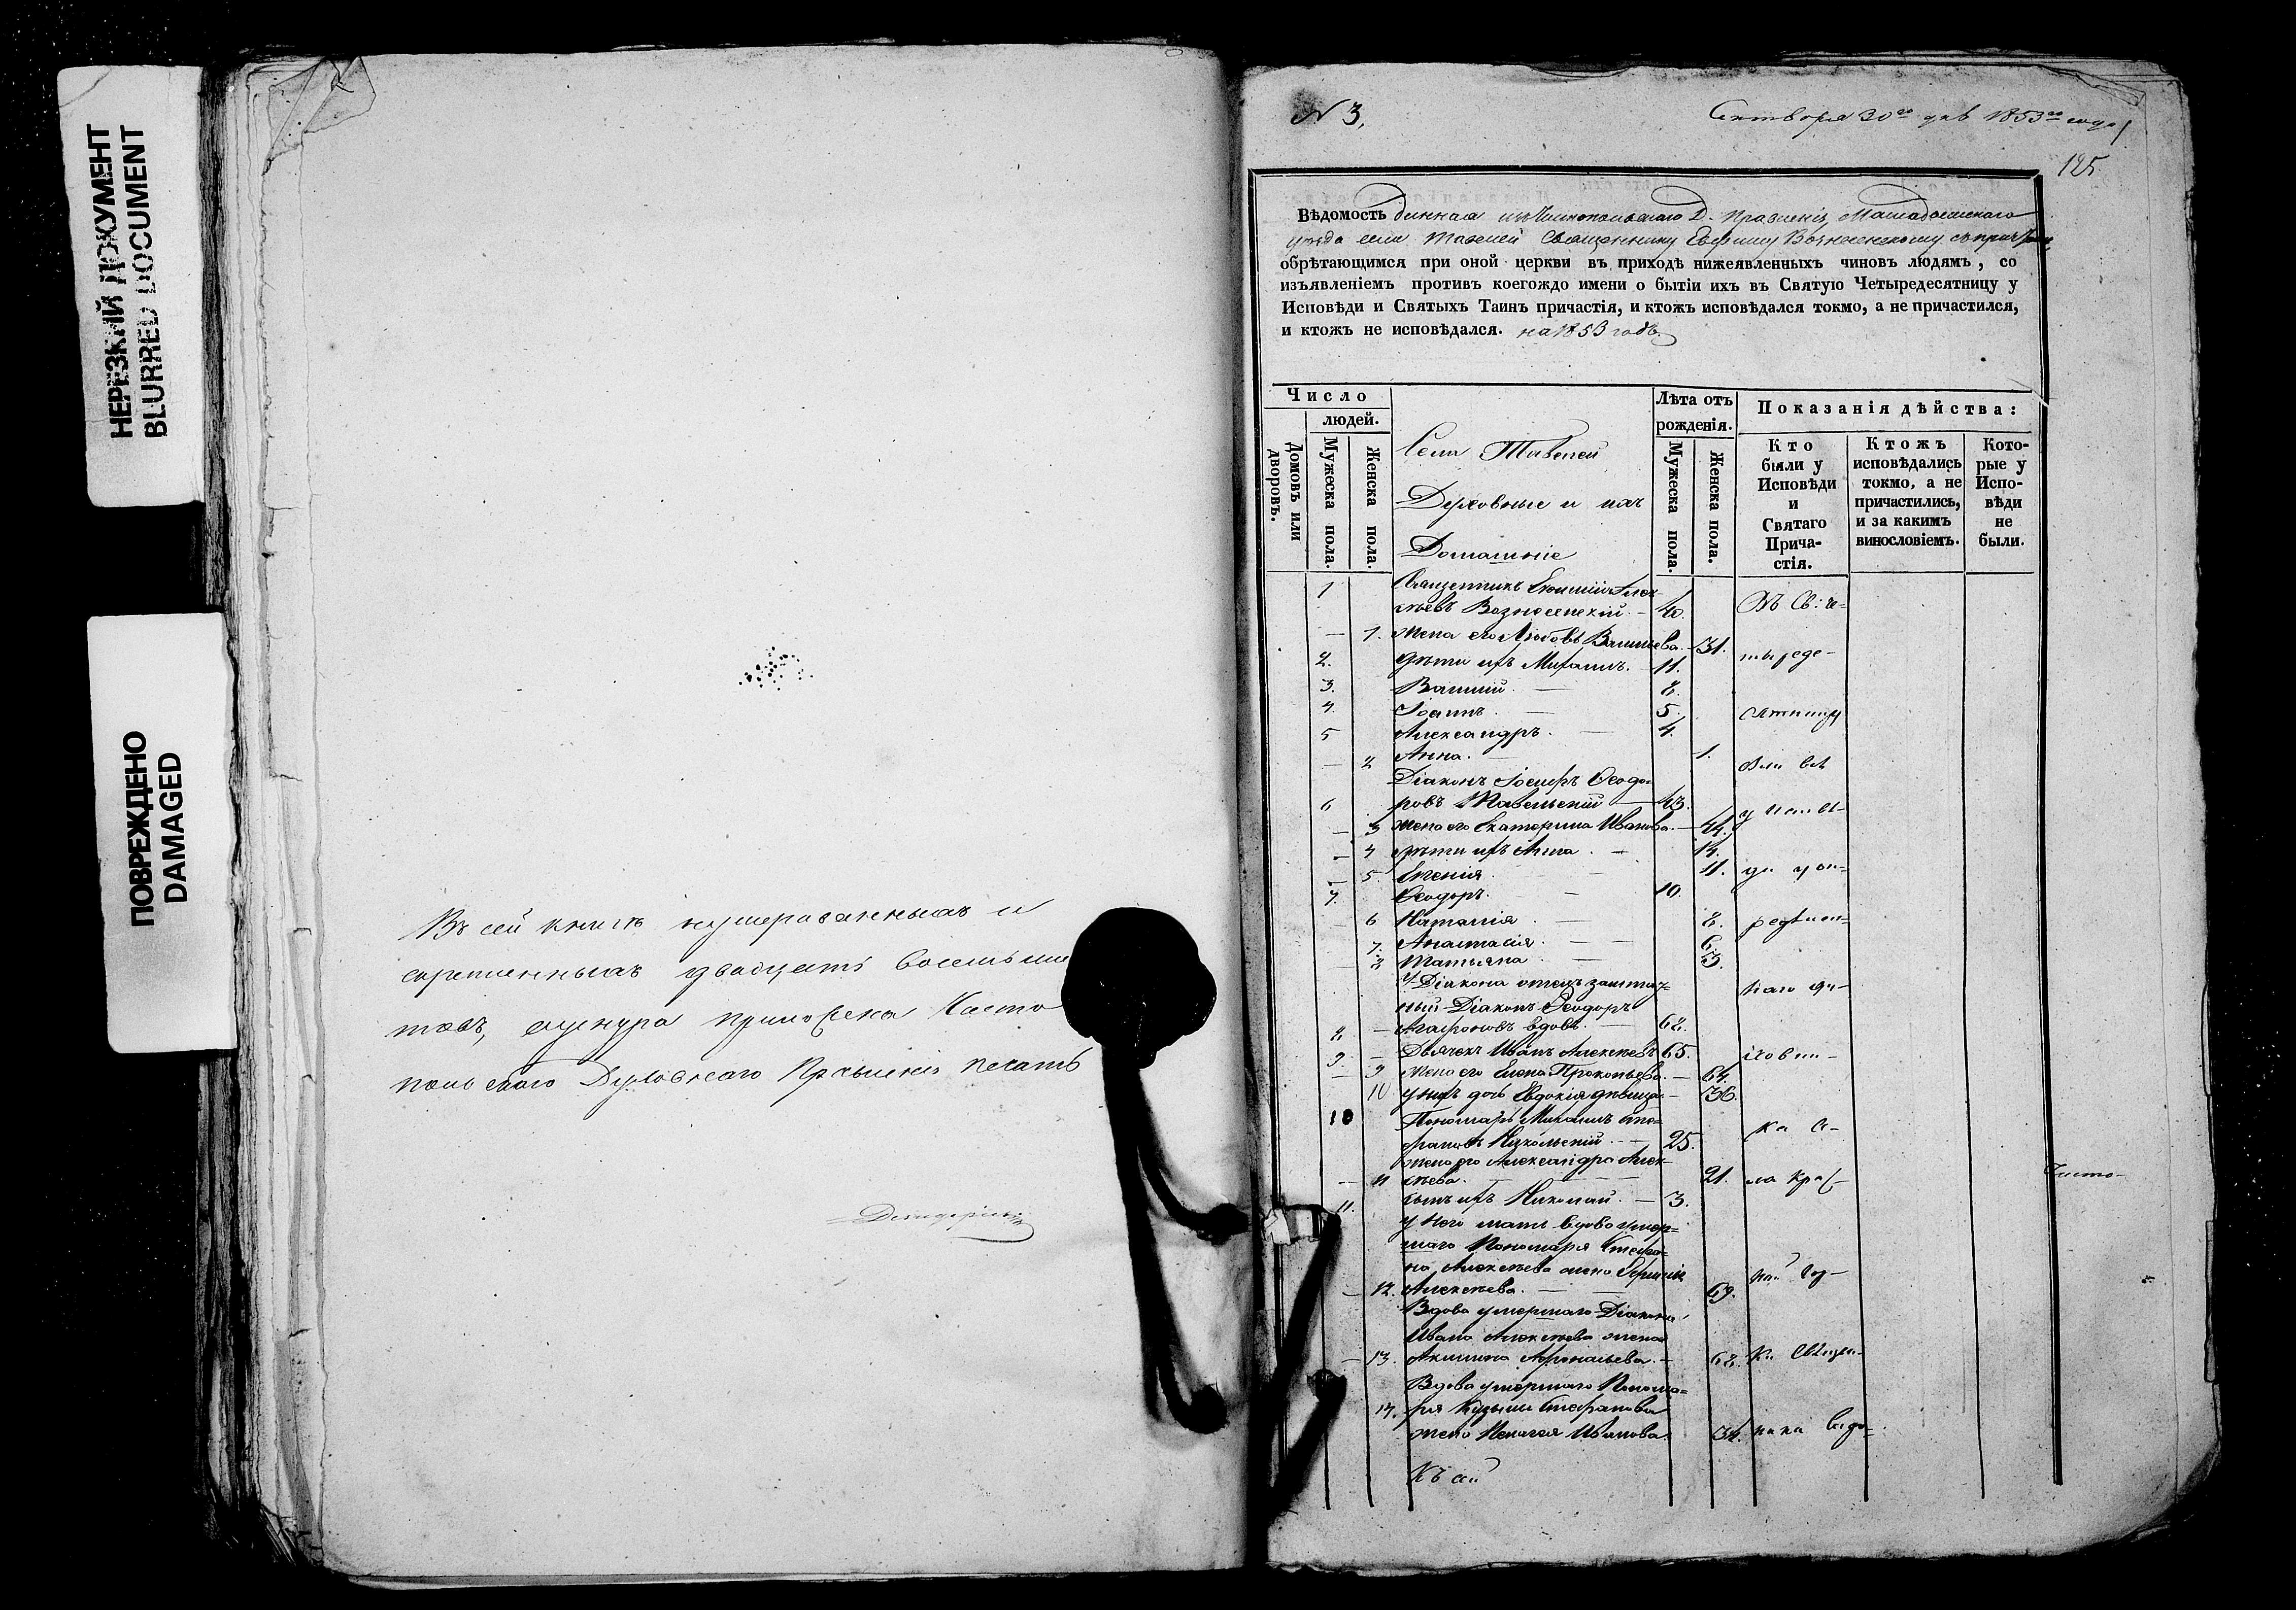 НЕРЕЗКИЙ ДОКУМЕНТ
BLURRED DOCUMENT
ПОВРЕЖДЕНО
DAMAGED
Въ сей книгѣ нумерованныхъ и
скрепленныхъ двадцать восемь лис
товъ, приложена Чисто
польскаго Духовнаго Правленія печать
№ 3.
Октября 30го дня 1853го года
125
Вѣдомость данная изъ Чистопольскаго Д. Правленія Мамадышскаго
уѣзда села Священнику Вознесенскому съ причтомъ
обрѣтающимся при оной церкви въ приходѣ нижеявленныхъ чиновъ людямъ, со
изъявленіемъ противъ коегождо имени о бытіи ихъ въ Святую Четыредесятницу у
Исповѣди и Святыхъ Таинъ причастія, и ктожъ исповѣдался токмо, а не причастился,
и ктожъ не исповѣдался. на 1853 годъ.
Число
людей.
Домовъ или дворовъ.
Мужеска пола.
Женска пола.
Села
Духовные и ихъ
Домашніе
Лѣта отъ
рожденія.
Мужеска пола.
Женска пола.
Показанія дѣйства:
Кто
были у
Исповѣди
и
Святаго
Прича-
стія.
Ктожъ
исповѣдались
токмо, а не
причастились,
и за какимъ
винословіемъ.
Кото-
рые у
Испо-
вѣди
не
были.
1 Священникъ Алек-
сѣевъ Вознесенскій. — 40. Въ Св: че-
— 1. жена его Любовь Васильева. — 31. тыреде-
2. дѣти ихъ Михаилъ. 11.
3. Василій. — 8.
4. Іоаннъ. — 5. сятницу
5 Александръ. — 4.
— 2 Анна. — 1. были всѣ
Діаконъ Іосифъ Ѳеодо-
6 ровъ — 43. у исповѣ-
— 3 жена его Екатерина Иванова. — 44.
— 4 дѣти ихъ Анна. — 14.
— 5. Евгенія. 11.
7. Ѳеодоръ. — 10.
— 6 Наталія. — 8.
7. Анастасія. — 6.
— 8 Татьяна. — 3.
у Діакона отецъ заштат-
ный Діаконъ Ѳеодоръ
8. — вдовъ. — 68.
9. — Дьячекъ Иванъ Алексѣевъ 65. ховни-
— 9 жена его Елена Прокопьева. — 64.
10 у нихъ дочь Евдокія дѣвица — 36.
10 Пономарь Михаилъ Сте-
фановъ Никольскій. — 25. ка
жена его Александра Алек-
— 11 сѣева. — 21.
11. сынъ ихъ Николай. — 3.
у него мать вдова умер-
шаго Пономаря Стефа-
на Алексѣева жена
— 12. Алексѣева. — 69.
Вдова умершаго Діакона
Ивана Алексѣева жена
— 13. Акилина Аѳанасьева. — 68.
Вдова умершаго Понома-
14. ря Кузьмы Стефанова
жена Пелагея Иванова. 34.
Къ сей
Чисто-